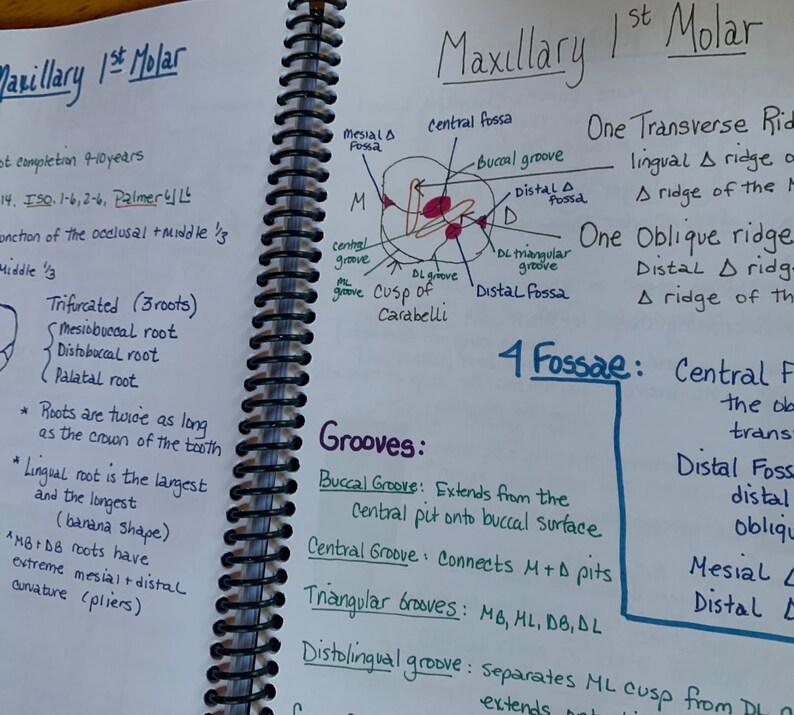 Maxillary 1st Molar
completion 9-10 years
14, ISO, 1-6, 2-6, Palmer 6┘ └6
of the occlusal + middle 1/3
Middle 1/3
Trifurcated (3 roots)
Mesiobuccal root
Distobuccal root
Palatal root
* Roots are twice as long
as the crown of the tooth
* Lingual root is the largest
and the longest
(banana shape)
* MB + DB roots have
extreme mesial + distal
curvature (pliers)
Maxillary 1st Molar
Mesial Δ
fossa
Central fossa
Buccal groove
Distal Δ
fossa
M
D
central
groove
ML
groove
Cusp of
Carabelli
DL groove
DL triangular
groove
Distal Fossa
One Transverse
lingual Δ ridge
Δ ridge of the
One Oblique ridge
Distal Δ
Δ ridge of
4 Fossae:
Central
the
Distal
distal
Mesial
Distal
Grooves:
Buccal Groove: Extends from the
central pit onto buccal surface
Central Groove: connects M + D pits
Triangular Grooves: MB, ML, DB, DL
Distolingual groove: Separates ML cusp from DL
extends